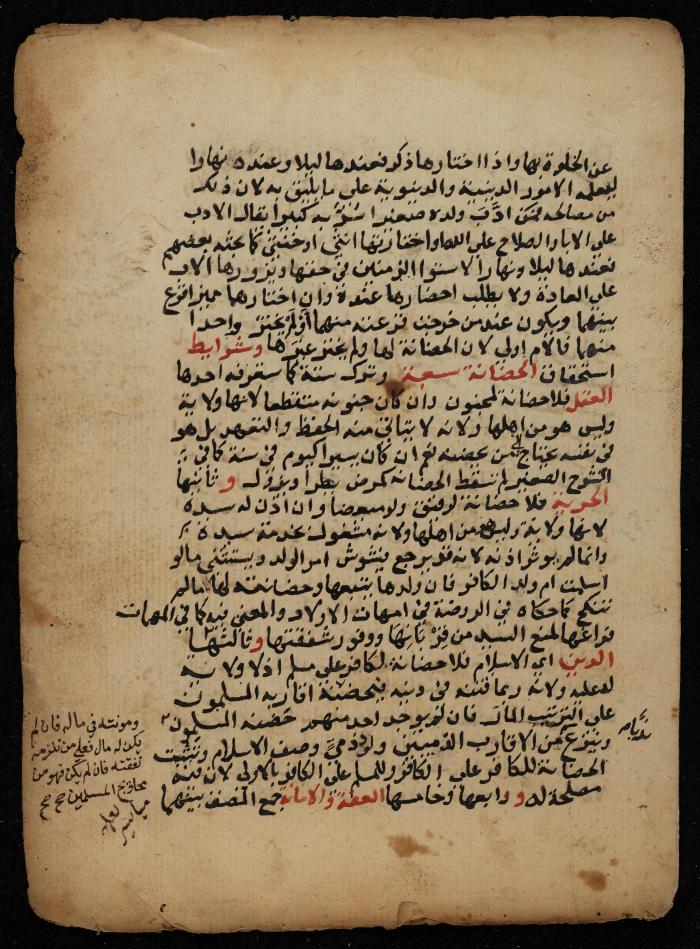 عن الخلوة بها واذا اختارها ذكر فعندها ليلا وعنده نهارا
ليعلمه الامور الدينية والدنيوية على ما يليق به لان ذلك
من مصالحه فمن ادّب ولده صغيرا سُرَّ به كبيرا يقال الادب
على الابا والصلاح على الله او اختارتها انثى او خنثى كما بحثه بعضهم
فعندها ليلا ونهارا لاستوا الزمنين في حقها ويزورها الاب
على العادة ولا يطلب احضارها عنده وان اختارهما مميز اقرع
بينهما ويكون عند من خرجت قرعته منهما او لم يختر واحدا
منهما فالام اولى لان الحضانة لها ولم يختر غيرها وشرايط
استحقاق الحضانة سبعة وترك ستة كما ستعرفه احدها
العقل فلا حضانة لمجنون وان كان جنونه متقطعا لانها ولاية
وليس هو من اهلها ولانه لا يتاتى منه الحفظ والتعهد بل هو
في نفسه يحتاج الى من يحضنه نعم ان كان يسيرا كيوم في سنة كما في
الشرح الصغير لم تسقط الحضانة كمرض يطرا ويزول و ثانيها
الحرية فلا حضانة لرقيق ولو مبعضا وان اذن له سيده
لانها ولاية وليس من اهلها ولانه مشغول بخدمة سيده
وانما لم يوثر اذنه لانه قد يرجع فيشوش امر الولد ويستثنى ما لو
اسلمت ام ولد الكافر فان ولدها يتبعها وحضانته لها ما لم
تنكح كما حكاه في الروضة في امهات الاولاد والمعنى فيه كما في المهمات
فراغها لمنع السيد من قربانها ووفور شفقتها و ثالثها
الدين اي الاسلام فلا حضانة لكافر على مسلم اذ لا ولاية
له عليه ولانه ربما فتنه في دينه فيحضنه اقاربه المسلمون
على الترتيب المار فان لم يوجد احد منهم حضنه المسلمون
وينزع من الاقارب الذميين ولد ذمي وصف الاسلام وتثبت
الحضانة للكافر على الكافر وللمسلم على الكافر بالاولى لان فيه
مصلحة له و رابعها وخامسها العفة والامانة جمع المصنف بينهما
ومونته في ماله فان لم
يكن له مال فعلى من تلزمه
نفقته فان لم يكن فهو من
محاويج المسلمين صح صح